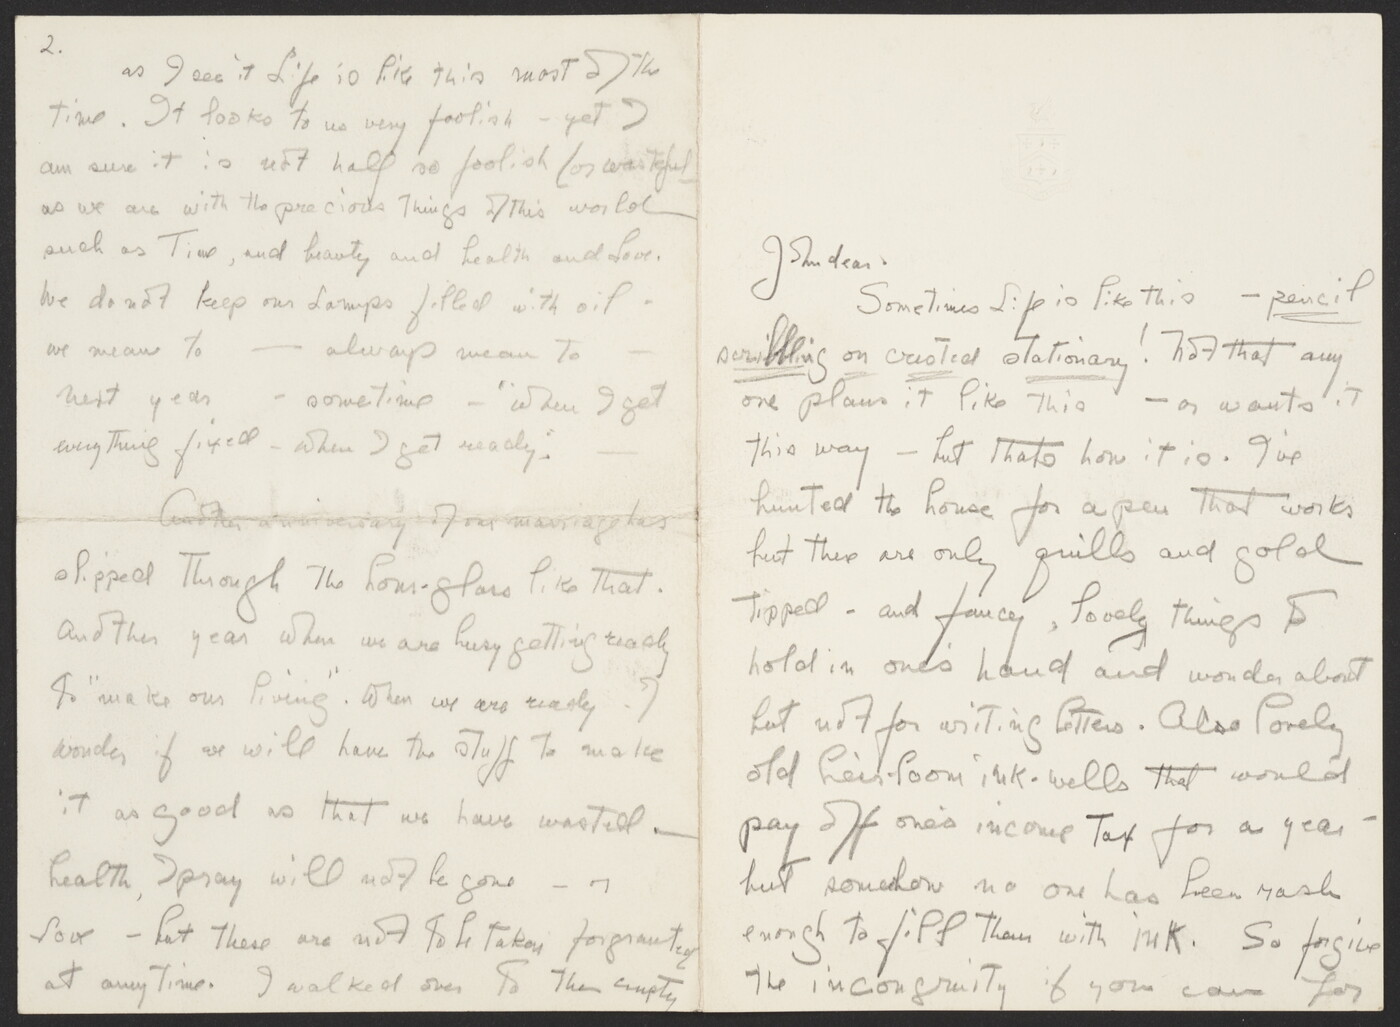 John dear.
Sometimes Life is like this – pencil
scribbling on crested stationary! Not that any
one plans it like this – or wants it
this way – but thats how it is. I've
hunted the house for a pen that works
but there are only quills and gold
tipped – and fancy, lovely things to
hold in one's hand and wonder about
but not for writing letters. Also lovely
old heir-loom ink-wells that would
pay off one's income Tax for a year –
but somehow no one has been rash
enough to fill them with ink. So forgive
the incongruity if you care for
2.
as I see it Life is like this most of the
time. It looks to us very foolish – yet I
am sure it is not half so foolish (or wasteful
as we are with the precious things of this world
such as Time, and beauty and health and Love.
We do not keep our Lamps filled with oil –
we mean to — always mean to –
next year – sometime – "when I get
everything fixed – when I get ready". —
Another anniversary of our marriage has
slipped through the hour-glass like that.
Another year when we are busy getting ready
to "make our living". When we are ready I
wonder if we will have the stuff to make
it as good as that we have wasted. —
health, I pray will not be gone – or
Love – but these are not to be taken for granted
at any time. I walked over to the empty